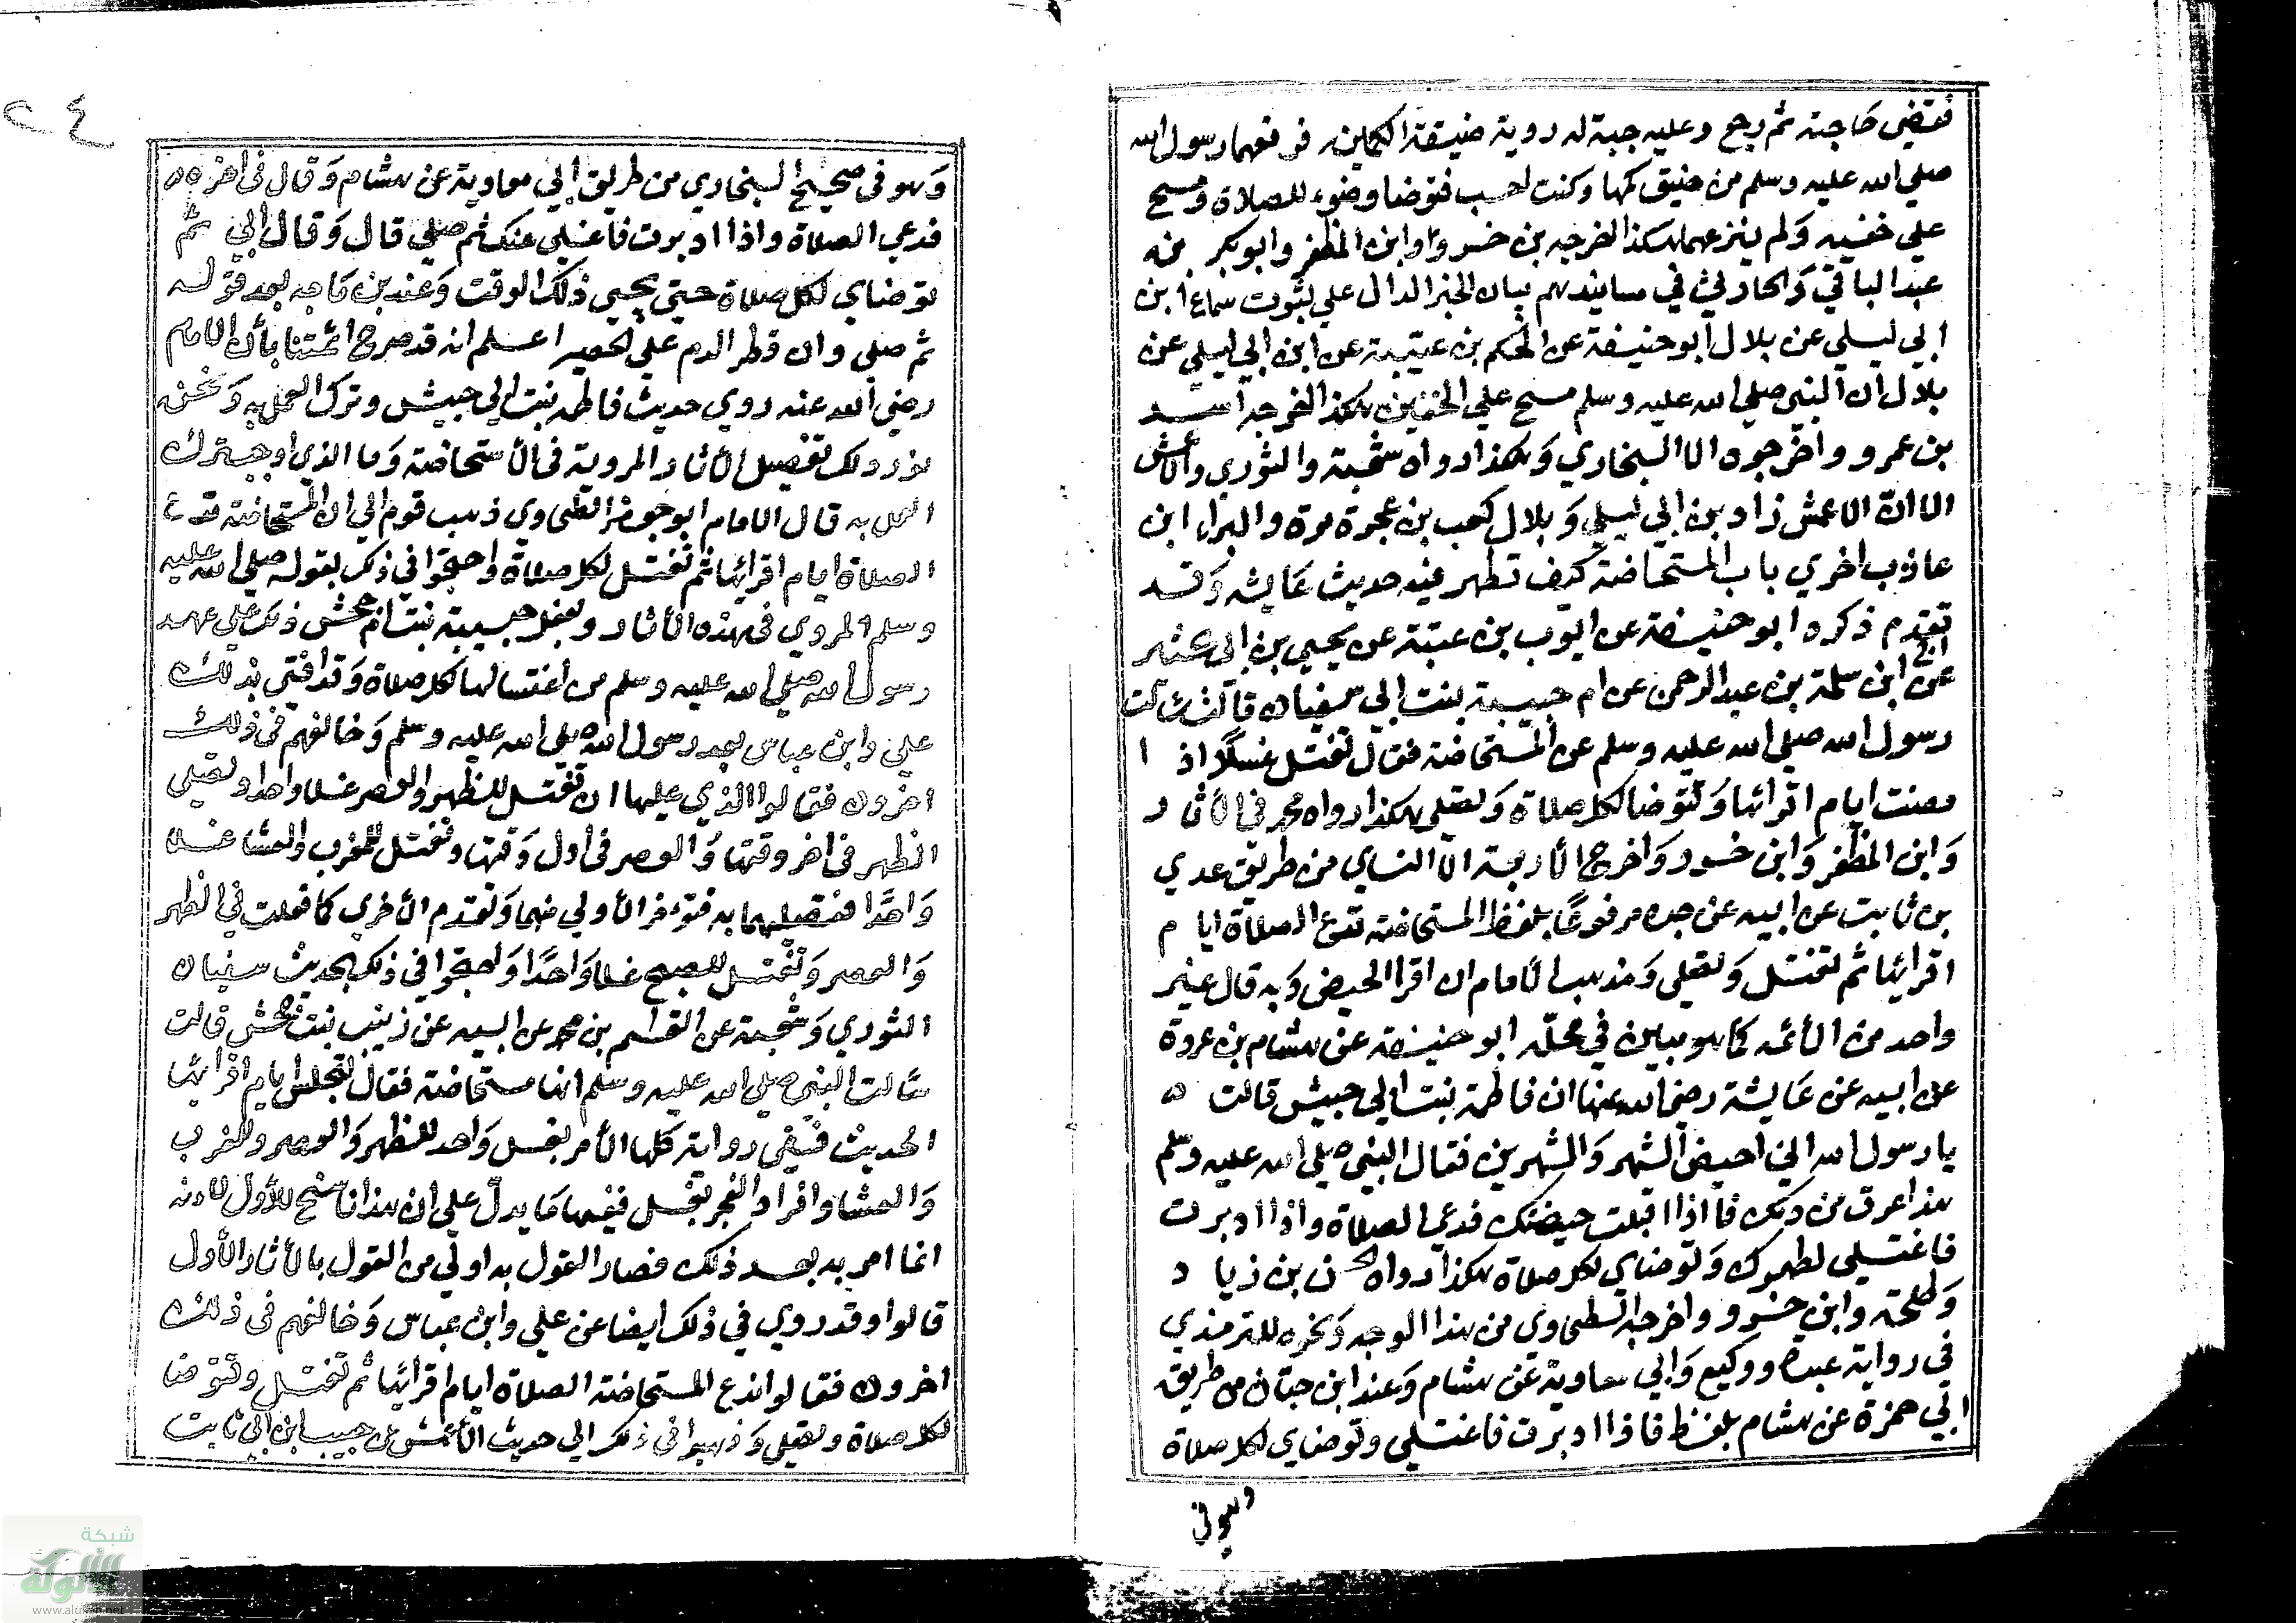 فقضي حاجته ثم رجع وعليه جبة له رومية ضيقة الكمين فرفعهما رسول الله
صلي الله عليه وسلم من ضيق كمها وكنت اصب فتوضا وضوء للصلاة ومسح
علي خفيه وَلم ينزعهما هكذا اخرجه بن خسرو وابن المظفر وابوبكر بن
عبد الباقي وَالحارثي في مسانيدهم بيان الخبر الدال علي ثبوت سماع ابن
ابي ليلي عن بلال ابو حنيفة عن الحكم بن عتيبة عن ابن ابي ليلي عن
بلال ان النبي صلي الله عليه وسلم مسح علي الخفين هكذا اخرجه اسد
بن عمرو واخرجوه الا البخاري وَهكذا رواه شعبة والثوري والاعمش
الا ان الاعمش زاد بين ابي ليلي وَبلال كعب بن عجرة مرة والبراء ابن
عازب اخري باب المستحاضة كيف تطهر فيه حديث عَايشه وَقد
تقدم ذكره ابو حنيفة عن ايوب بن عتبة عن يحيي بن ابي كثير
عن ابي سلمة بن عبد الرحمن عن ام حبيبة بنت ابي سفيان قالت سالت
رسول الله صلي الله عليه وسلم عن المستحاضة فقال تغتسل غسلًا اذا
مضت ايام اقرائها وَتتوضا لكل صلاة وَتصلي هكذا رواه محمد في الأثار
وَابن المظفر وَابن خسرو وَاخرج الأربعة الا النساي من طريق عدي
بن ثابت عن ابيه عن جده مرفوعًا بلفظ المستحاضة تدع الصلاة ايام
اقرائها ثم تغتسل وَتصلي وَمذهب الأمام ان اقرا الحيض وَبه قال غير
واحد من الأئمه كما هو مبين في محله ابو حنيفة عن هشام بن عروة
عن ابيه عن عَايشة رضي الله عنها ان فاطمة بنت ابي حبيش قالت
يا رسول الله اني احيض الشهر وَالشهرين فقال النبي صلي الله عليه وسلم
هذا عرق من دمك فاذا اقبلت حيضتك فدعي الصلاة واذا ادبرت
فاغتسلي لطهرك وَتوضاي لكل صلاة هكذا رواه الحسن بن زياد
وَطلحة وابن خسرو واخرجه الطحاوي من هذا الوجه وَنحوه للترمذي
في رواية عبدة ووكيع وَابي معاوية عن هشام وَعند ابن حبان من طريق
ابي حمزة عن هشام بلفظ فاذا ادبرت فاغتسلي وتوضاي لكل صلاة
وهو في
٢٤
وَهو في صحيح البخاري من طريق ابي معاوية عن هشام وَقال في اخره
فدعي الصلاة واذا ادبرت فاغسلي عنك ثم صلي قال وَقال ابي ثم
توضاي لكل صلاة حتي يجيي ذلك الوقت وَعند بن مَاجه بعد قوله
ثم صلي وان قطر الدم علي الحصير اعلم انه قد صرح ائمتنا بأن الامام
رضي الله عنه روي حديث فاطمة بنت ابي حبيش وترك العمل به وَنحن
نورد لك تفصيل الأثار المروية في الأستحاضة وَما الذي اوجب ترك
العمل به قال الامام ابو جعفر الطحاوي ذهب قوم الي ان المستحاضة تدع
الصلاة ايام اقرائها ثم تغتسل لكل صلاة واحتجوا في ذلك بقوله صلي الله عليه
وسلم المروي في هذه الأثار وبفعل حبيبة بنت جحش ذلك علي عهد
رسول الله صلي الله عليه وسلم من اغتسالها لكل صلاة وَقد افتي بذلك
علي وابن عباس بعد رسول الله صلي الله عليه وسلم وَخالفهم في ذلك
اخرون فقالوا الذي عليها ان تغتسل للظهر والعصر غسلا واحدا وتصلي
الظهر في اخر وقتها وَالعصر في اول وَقتها وتغتسل للمغرب والعشا غسلا
وَاحدًا فتصليهما به فتؤخر الأولي منهما وَتقدم الأخري كما فعلت في الظهر
وَالعصر وَتغتسل للصبح غسلا وَاحدًا وَاحتجوا في ذلك بحديث سفيان
الثوري وَشعبة عن القاسم بن محمد عن ابيه عن زينب بنت جحش قالت
سَالت النبي صلي الله عليه وسلم انها مستحاضة فقال لتجلس ايام اقرائها
الحديث فبقي رواية كلها الأمر بغسل وَاحد للظهر وَالعصر وللمغرب
وَالعشا وافراد الفجر بغسل ففيها مَا يدل علي ان هذا ناسخ للأول لانه
انما امر به بعد ذلك فصار القول به اولي من القول بالأثار الأول
قالوا وقد روي في ذلك ايضا عن علي وابن عباس وَخالفهم في ذلك
اخرون فقالوا تدع المستحاضة الصلاة ايام اقرائها ثم تغتسل وتتوضا
لكل صلاة وتصلي وَذهبوا في ذلك الي حديث الأعمش عن حبيب ابن ابي ثابت
شبكة
الألوكة
www.alukah.net